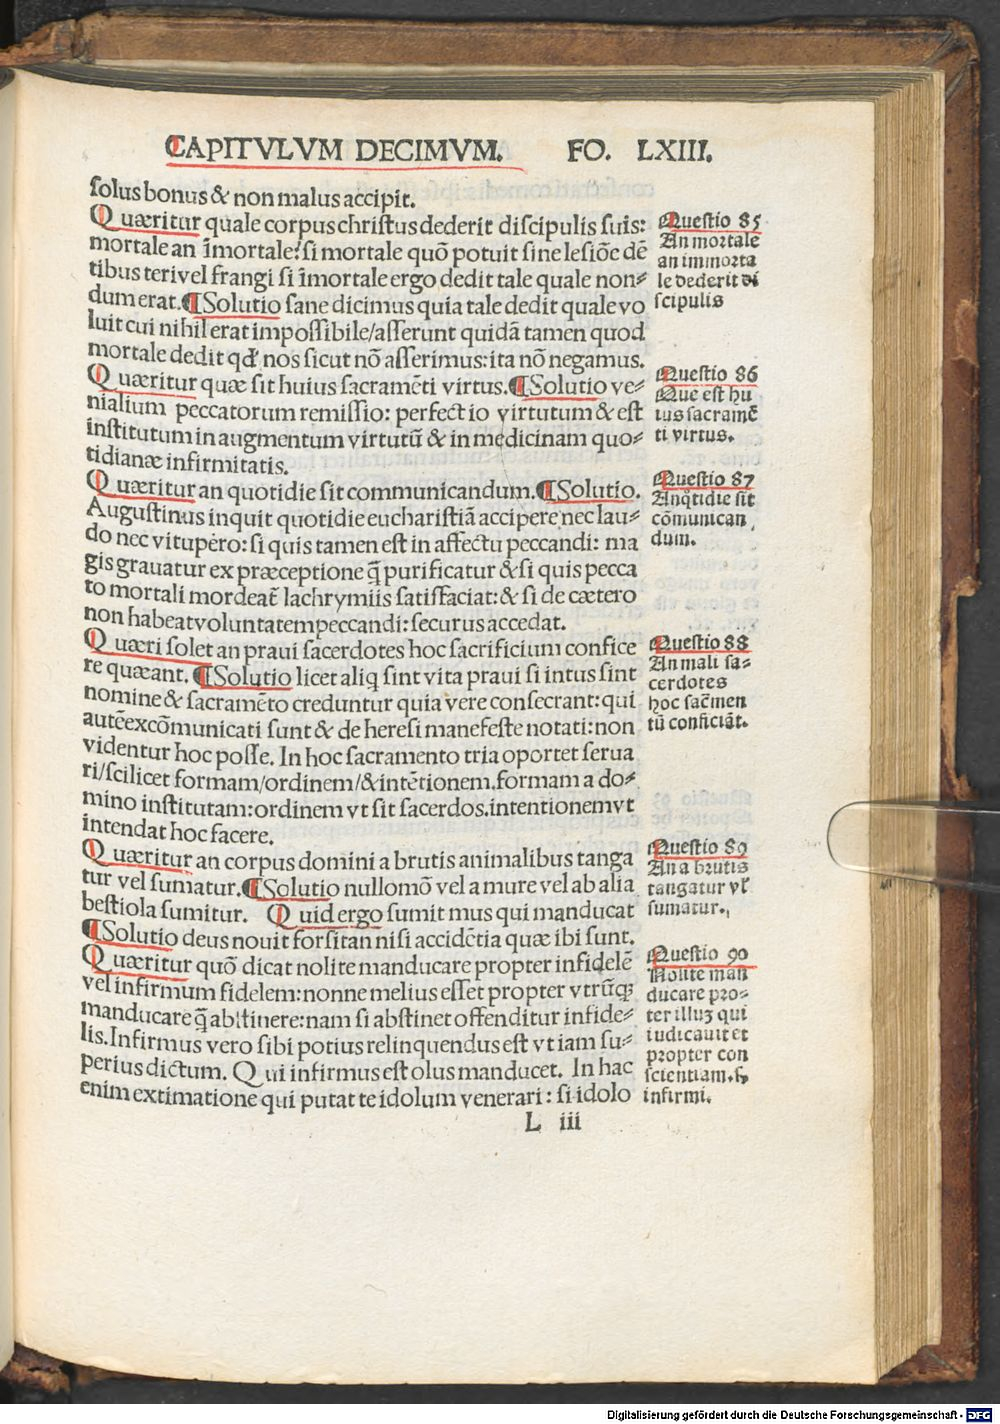 CAPITVLVM DECIMVM. FO. LXIII.
solus bonus & non malus accipit.
Quæritur quale corpus christus dederit discipulis suis:
mortale an īmortale? si mortale quō potuit sine lesiōe dē
tibus teri vel frangi si īmortale ergo dedit tale quale non⸗
dum erat. ¶Solutio sane dicimus quia tale dedit quale vo
luit cui nihil erat impossibile/asserunt quidā tamen quod
mortale dedit qđ nos sicut nō asserimus: ita nō negamus.
Quæritur quæ sit huius sacramēti virtus. ¶Solutio ve⸗
nialium peccatorum remissio: perfectio virtutum & est
institutum in augmentum virtutū & in medicinam quo⸗
tidianæ infirmitatis.
Quæritur an quotidie sit communicandum. ¶Solutio.
Augustinus inquit quotidie eucharistiā accipere nec lau⸗
do nec vitupero: si quis tamen est in affectu peccandi: ma
gis grauatur ex præceptione q̄ purificatur & si quis pecca
to mortali mordeat lachrymiis satisfaciat: & si de cætero
non habeat voluntatem peccandi: securus accedat.
Quæri solet an praui sacerdotes hoc sacrificium confice
re quæant. ¶Solutio licet aliq̨ sint vita praui si intus sint
nomine & sacramēto creduntur quia vere consecrant: qui
autē excōmunicati sunt & de heresi manefeste notati: non
videntur hoc posse. In hoc sacramento tria oportet serua
ri/scilicet formam/ordinem/& intētionem. formam a do⸗
mino institutam: ordinem vt sit sacerdos. intentionem vt
intendat hoc facere.
Quæritur an corpus domini a brutis animalibus tanga
tur vel sumatur. ¶Solutio nullomō vel a mure vel ab alia
bestiola sumitur. Quid ergo sumit mus qui manducat
¶Solutio deus nouit forsitan nisi accidētia quæ ibi sunt.
Quæritur quō dicat nolite manducare propter infidelē
vel infirmum fidelem: nonne melius esset propter vtrūq;
manducare q̄ abstinere: nam si abstinet offenditur infide⸗
lis. Infirmus vero sibi potius relinquendus est vt iam su⸗
perius dictum. Qui infirmus est olus manducet. In hac
enim extimatione qui putat te idolum venerari: si idolo
L iii
Questio 85
An mortale
an immorta
le dederit di
scipulis
Questio 86
Que est hu
ius sacramē
ti virtus.
Questio 87
An q̊tidie sit
cōmunican
dum.
Questio 88
An mali sa⸗
cerdotes
hoc sac̄men
tū conficiāt.
Questio 89
An a brutis
tangatur vł
sumatur.
Questio 90
Nolite man
ducare pro⸗
ter illuʒ qui
iudicauit et
propter con
scientiam.
infirmi.
Digitalisierung gefördert durch die Deutsche Forschungsgemeinschaft - DFG